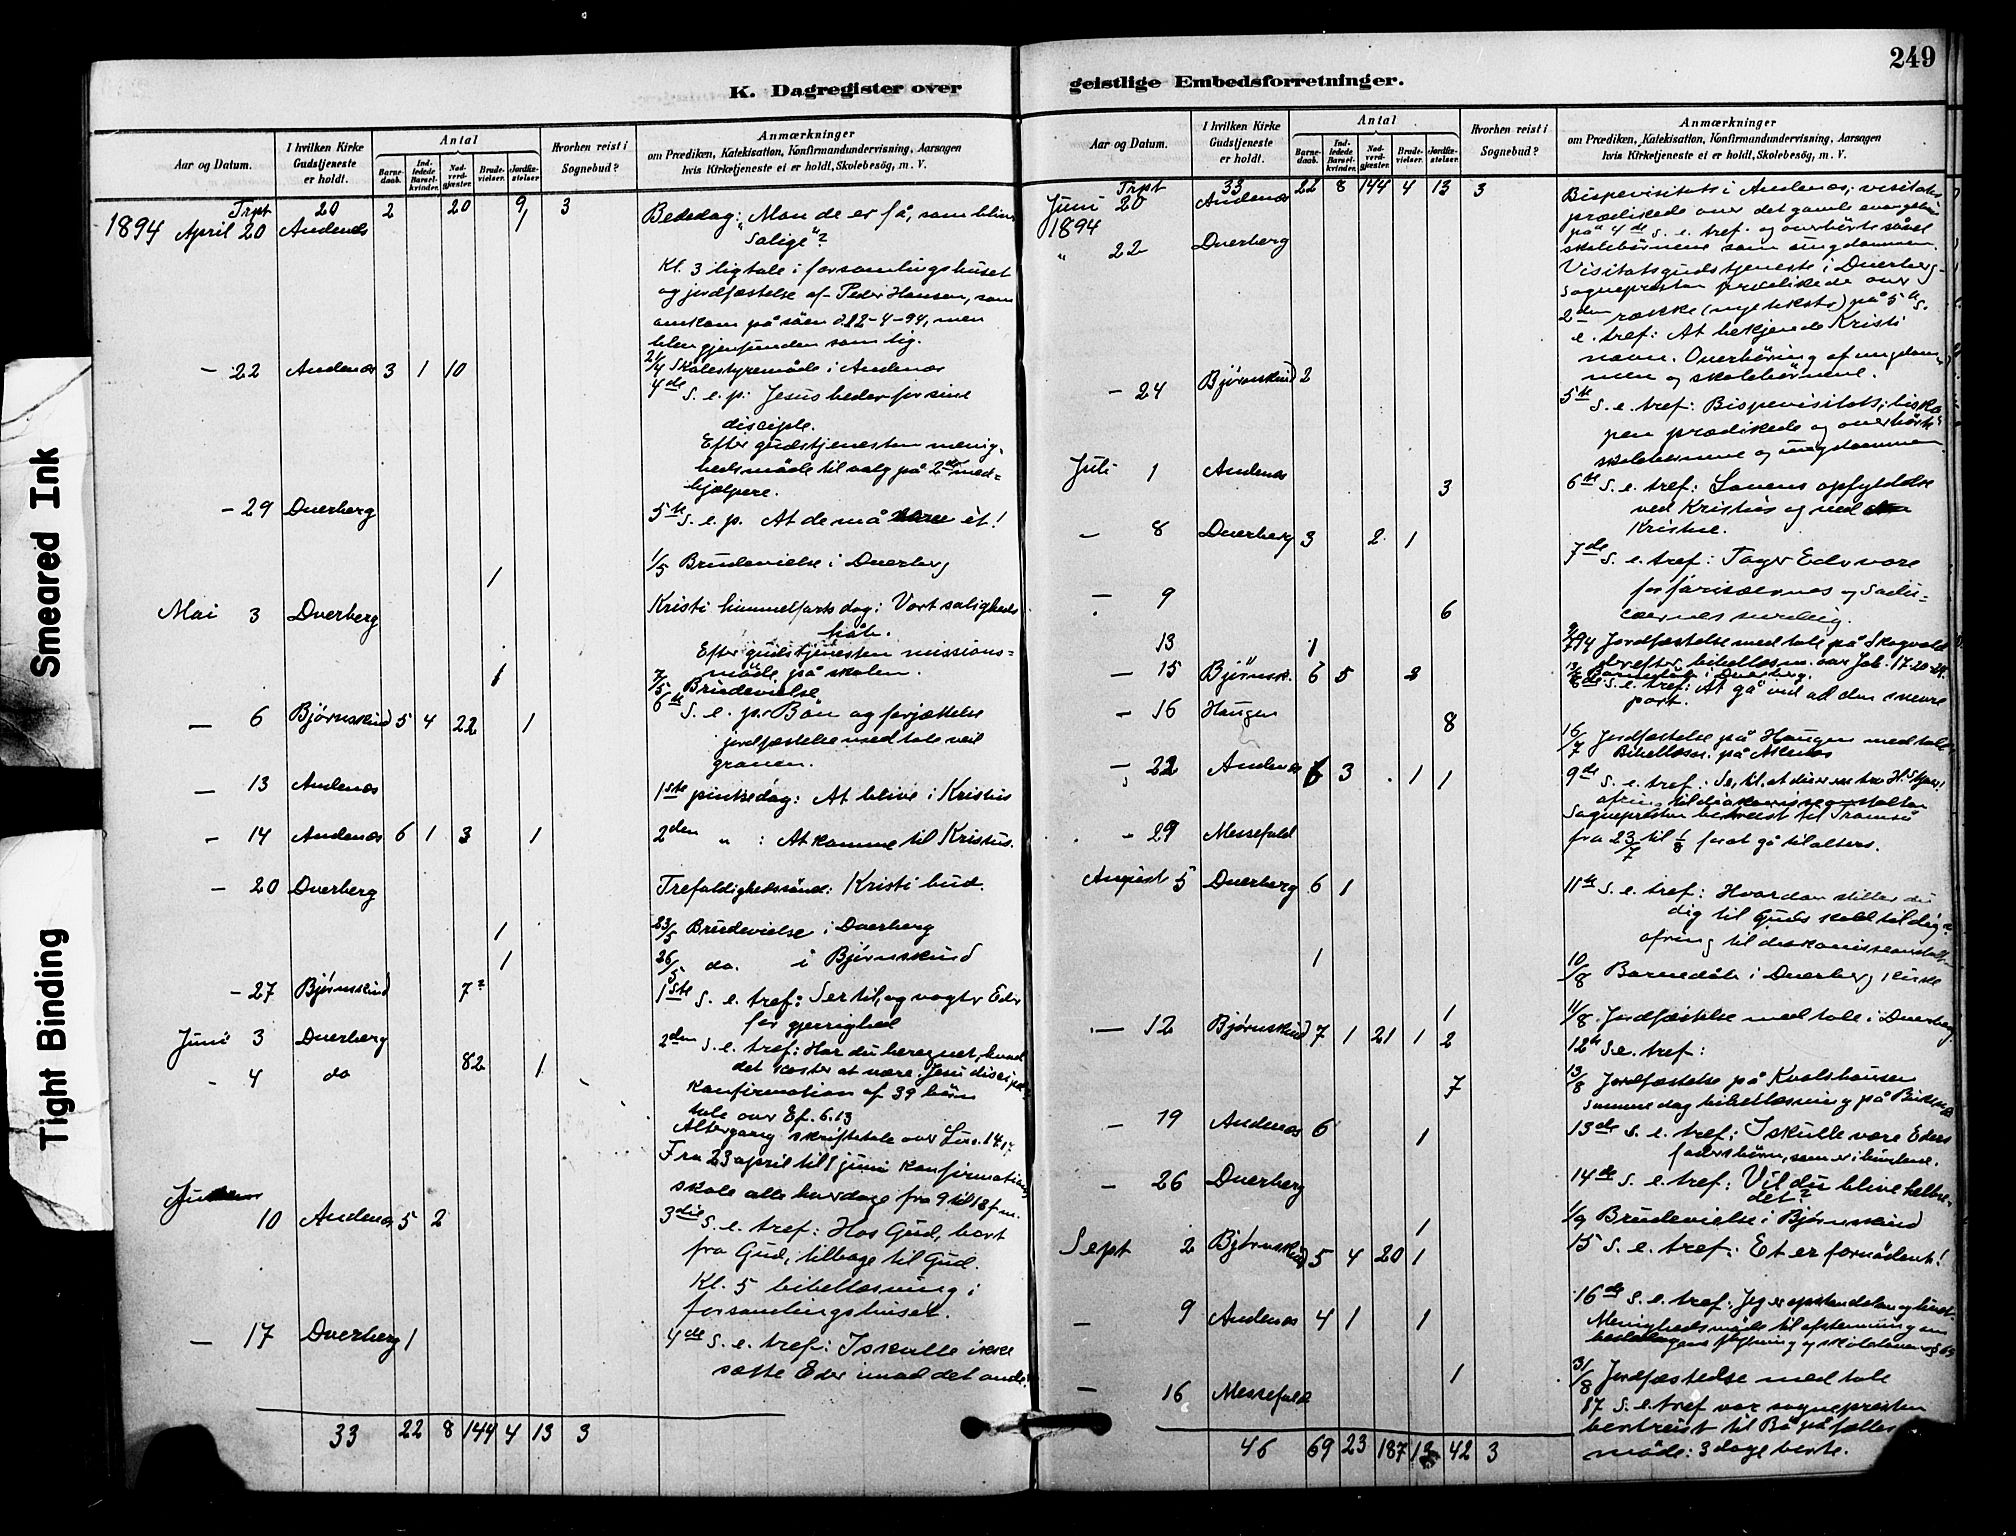 249
K. Dagregister over
geistlige Embedsforretninger.
Aar og Datum.
I hvilken Kirke Gudstjeneste er holdt.
Antal
Barnedaab.
Indledede Barselkvinder.
Nadverdgjæster.
Brudevielser.
Jordfæstelser
Hvorhen reist i Sognebud?
Anmærkninger
om Prædiken, Katekisation, Konfirmandundervisning, Aarsagen
hvis Kirketjeneste ei er holdt, Skolebesög, m. V.
Trpt 20 2 20 9 3
1894 April 20 Andenes 1 Bededag: Mon de er få, som bliver
"Salige"?
Kl. 3 ligtale i forsamlingshuset
og jordfæstelse af Peder Hansen, som
omkom på söen d. 12-4-94, men
blev gjenfunden som lig.
21/4 Skolestyremöde i Andenæs
- 22 Andenæs 3 1 10 4de S. e. p: Jesus beder for sine
disciple.
Efter gudstjenesten menig-
hedsmöde til valg på 2de med-
hjælpere.
- 29 Dverberg 5te S. e. p. At de må være ét!
1 1/5 Brudevielse i Dverberg
Mai 3 Dverberg Kristi himmelfartsdag: Vort saligheds
håb.
Efter gudstjenesten missions-
möde på skolen.
1 7/5 Brudevielse
- 6 Bjørnskind 5 4 22 1 6te S. e. p: Bön og forjættelse
jordfæstelse med tale ved
graven.
- 13 Andenæs 1ste pintsedag: At blive i Kristus
- 14 Andenæs 6 1 3 1 2den " : At komme til Kristus.
- 20 Dverberg Trefoldighedssönd: Kristi bud.
1 23/5 Brudevielse i Dverberg
1 26/5 do. i Bjørnskind
- 27 Bjørnskind 7? 1ste S. e. tref: Ser til, og vogter Eder
for gjerrighed
Juni 3 Dverberg 2den S. e. tref: Har du beregnet, hvad
det koster at være Jesu discipel
- 4 do 82 1 Konfirmation af 39 börn
tale over Ef. 6.13
Altergang skriftetale over Luc. 14.17
Fra 23 april til 1 juni konfirmation
skole alle hverdage fra 9 til
10 Andenæs 5 2 3die S. e. tref: Hos Gud, bort
fra Gud, tilbage til Gud.
Kl. 5 bibellæsning i
forsamlingshuset.
- 17 Dverberg 1 4de S. e. tref: I skulle ikke
sætte Eder imod det onde.
33 22 8 144 4 13 3
Aar og Datum.
I hvilken Kirke Gudstjeneste er holdt.
Antal
Barnedaab.
Indledede Barselkvinder.
Nadverdgjæster.
Brudevielser.
Jordfæstelser.
Hvorhen reist i Sognebud?
Anmærkninger
om Prædiken, Katekisation, Konfirmandundervisning, Aarsagen
hvis Kirketjeneste ei er holdt, Skolebesög, m. V.
Trpt 33 22 8 144 4 13 3
Juni 20 Andenæs Bispevisitats i Andenæs; visitator
1894 prædikede over det gamle evangelium
på 4de S. e. tref. og overhörte såvel
skolebörnene som ungdommen.
" 22 Dverberg Visitatsgudstjeneste i Dverberg
Sognepresten prædikede over
2den række (nye tekster) på 5te S.
e. tref: At bekjende Kristi
navn. Overhöring af ungdom-
men og skolebörnene.
- 24 Bjørnskind 2 5te S. e. tref: Bispevisitats; bisko-
pen prædikede og overhörte
skolebörnene og ungdommen
Juli 1 Andenæs 3 6te S. e. tref: Lovens opfyldelse
ved Kristus og ved
Kristne.
- 8 Dverberg 3 2 1 7de S. e. tref: Tager Eder vare
for farisæernes og Sadu-
cæernes surdeig.
- 9 6 9/7 94 Jordfæstelse med tale på Skogvold
derefter bibellæsn. over Joh. 17.20-24.
13 1 13/7 Barnedåb i Dverberg.
- 15 Bjørnsk. 6 5 2 8de S. e. tref: At gå ind ad den snevre
port.
- 16 Haugen 8 16/7 Jordfæstelse på Haugen med tale
Bibellæsn. på Åknes
- 22 Andenæs 6 3 1 1 9de S. e. tref:
ofring til diakonisseanstalten
Sognepresten bortreist til Tromsö
- 29 Messefald fra 23/7 til 1/8 for at gå til alters.
August 5 Dverberg 6 1 11te S. e. tref: Hvordan stiller du
dig til Guds kald til dig?
ofring til diakonisseanstalten
1 10/8 Barnedåb i Dverberg kirke
1 11/8 Jordfæstelse med tale i Dverberg
- 12 Bjørnskind 7 1 21 1 2 12te S. e. tref:
7 13/8 Jordfæstelse på Kvalshausen
Samme dag bibellæsning på
- 19 Andenæs 6 1 13de S. e. tref: I skulle være Eders
faders börn, som er i himlene.
- 26 Dverberg 14de S. e. tref: Vil du blive helbre-
det?
1 1/9 Brudevielse i Bjørnskind
Sept 2 Bjørnskind 5 4 20 1 15 S. e. tref: Et er fornödent!
- 9 Andenæs 4 1 1 16de S. e. tref: Jeg er opstandelsen og livet.
Menighedsmöde til afstemning om
1 31/8 Jordfæstelse med tale
- 16 Messefald 17 S. e. tref var sognepresten
bortreist til Bö på fælles
möde: 3 dage borte.
46 69 23 187 13 42 3
Smeared Ink
Tight Binding